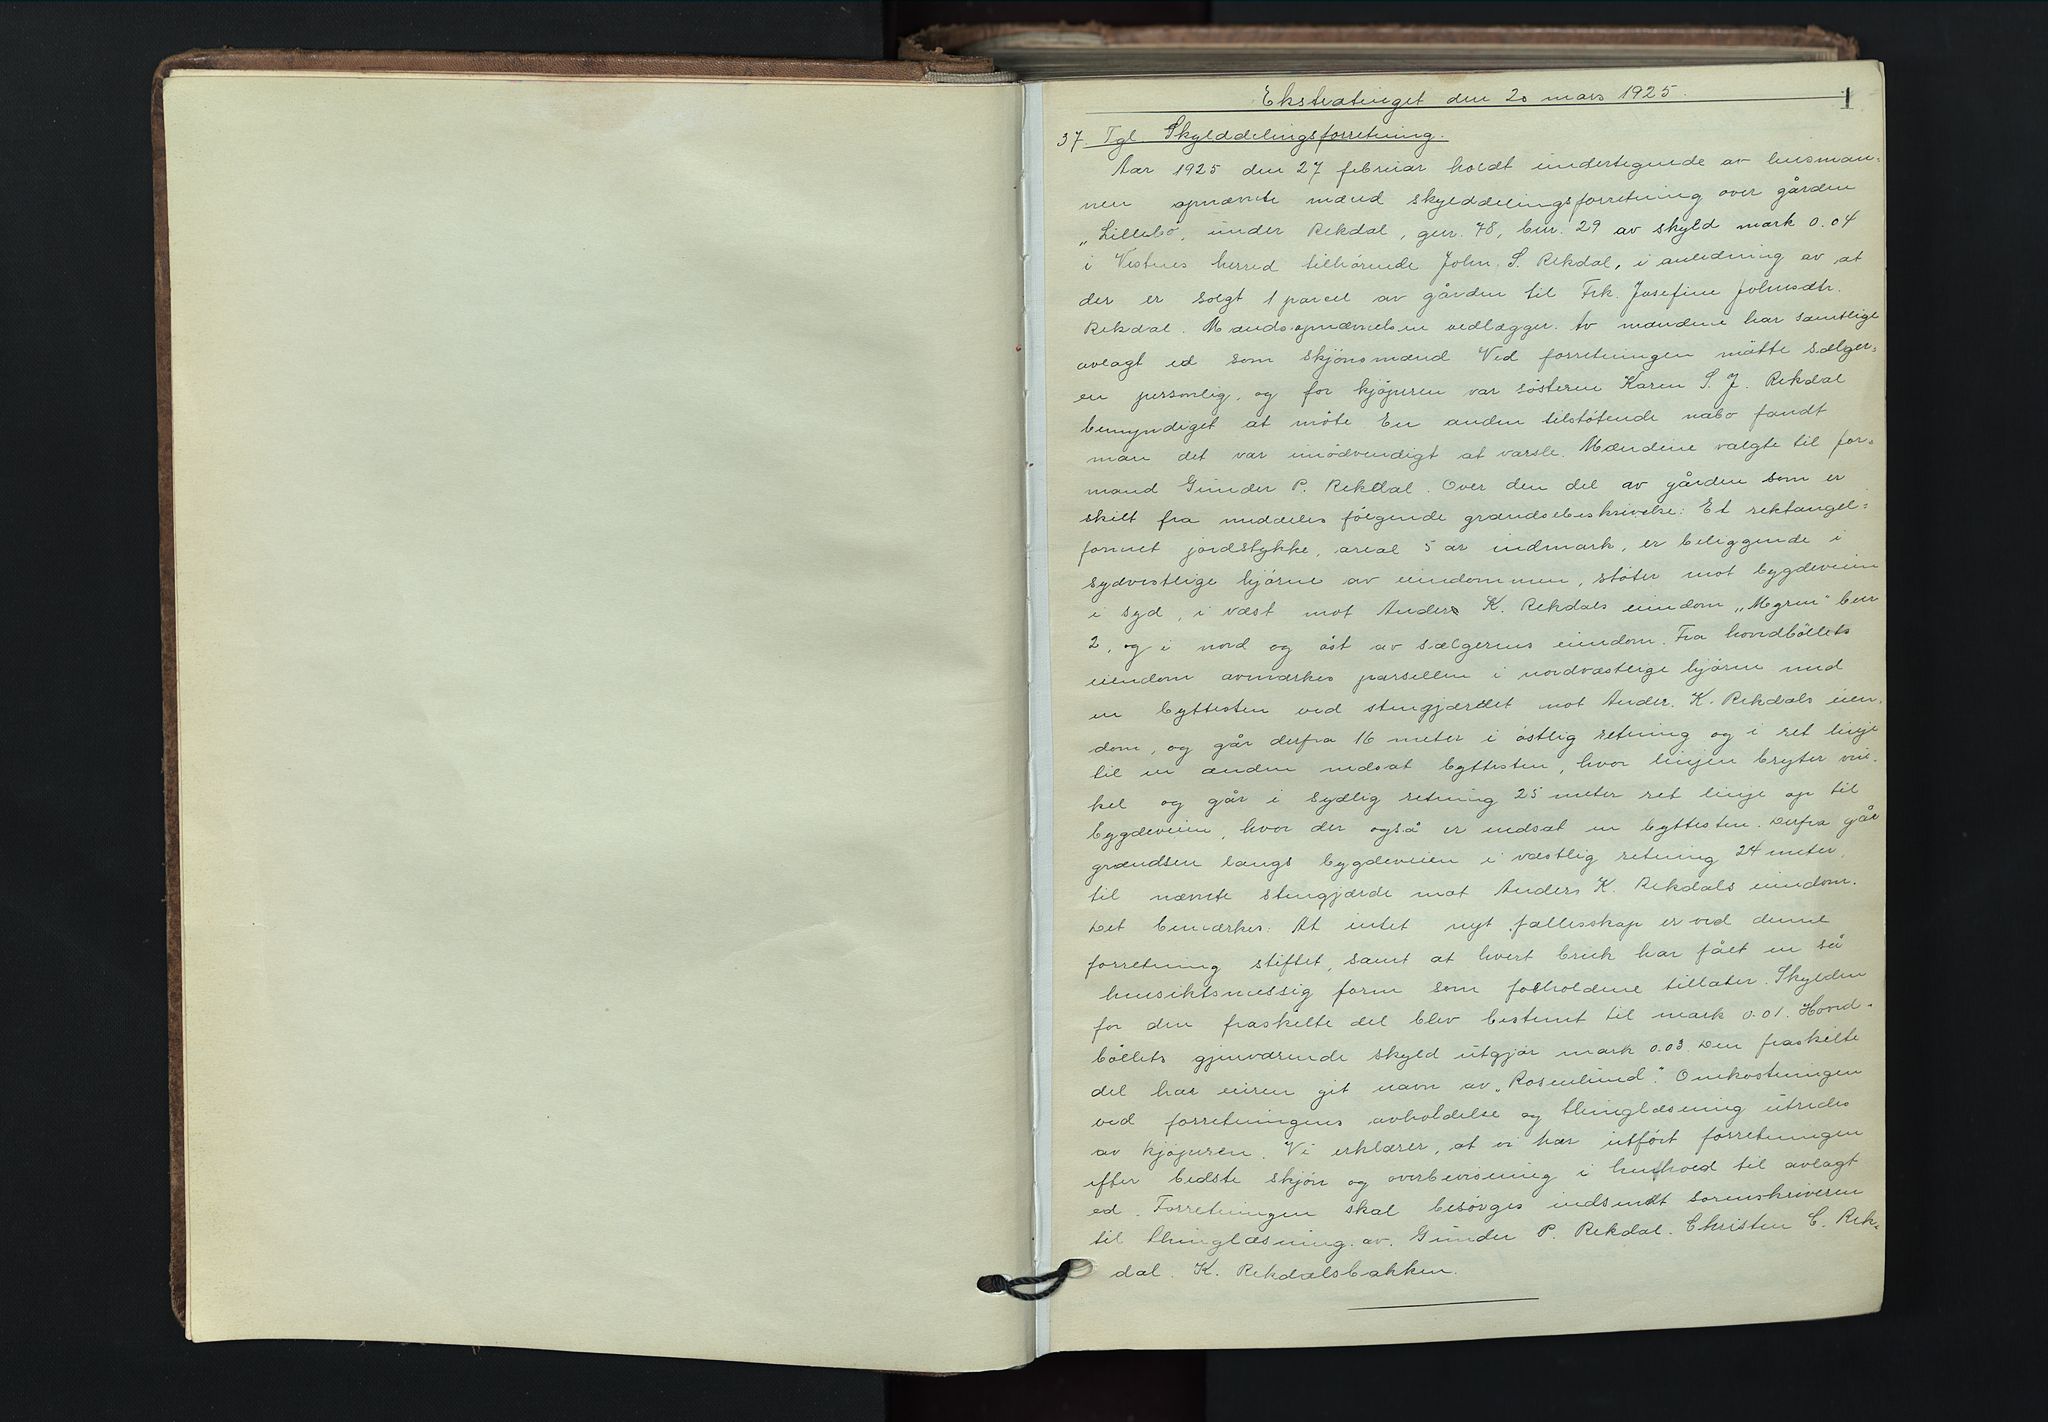 Ekstratinget den 20 mars 1925. 1
37. Tgl. Skylddelingsforretning.
Aar 1925 den 27 februar holdt undertegnede av lensman-
nen opnævnte mænd skylddelingsforretning over gården
„Lillebö, under Rekdal, gnr. 78, bnr. 29 av skyld mark 0.04
i Vestnes herred tilhörende John S. Rekdal, i anledning av at
der er solgt 1 parcel av gården til Frk. Josefine Johnsdtr.
Rekdal. Mandsopnævnelsen vedlægger. Av mændene har samtlige
avlagt ed som skjönsmænd Ved forretningen mötte sælger-
en personlig, og for kjöperen var sösteren Karen S. J. Rekdal
bemyndiget at möte En anden tilstötende nabo fandt
man det var unödvendigt at varsle. Mændene valgte til for-
mand Gunder P. Rekdal. Over den del av gården som er
skilt fra meddeles fölgende grændsebeskrivelse: Et rektangel-
formet jordstykke, areal 5 ar indmark, er beliggende i
sydvestlige hjörne av eiendommen, stöter mot bygdeveien
i syd, i væst mot Anders K. Rekdals eiendom „Mgren" bnr
2, og i nord og öst av sælgerens eiendom. Fra hovedböllets
eiendom avmærkes parsellen i nordvæstlige hjörne med
en byttesten ved stengjærdet mot Anders K. Rekdals eien-
dom, og går derfra 16 meter i östlig retning og i ret linje
til en anden nedsat byttesten, hvor linjen bryter vin-
kel og går i sydlig retning 25 meter ret linje op til
bygdeveien, hvor der også er nedsat en byttesten. Derfra går
grændsen langs bygdeveien i væstlig retning 24 meter,
til nævnte stengjærde mot Anders K. Rekdals eiendom.
Det bemærkes: At intet nyt fællesskap er ved denne
forretning stiftet, samt at hvert bruk har fået en så
hensiktsmessig form som forholdene tillater. Skylden
for den fraskilte del blev bestemt til mark 0.01. Hoved-
böllets gjenværende skyld utgjör mark 0.03. Den fraskilte
del har eieren git navn av „Rosenlund". Omkostningen
ved forretningens avholdelse og thinglæsning utredes
av kjöperen. Vi erklærer, at vi har utfört forretningen
efter bedste skjön og overbevisning i henhold til avlagt
ed. Forretningen skal besörges indsendt sorenskriveren
til thinglæsning av Gunder P. Rekdal. Christen C. Rek-
dal. K. Rekdalsbakken.